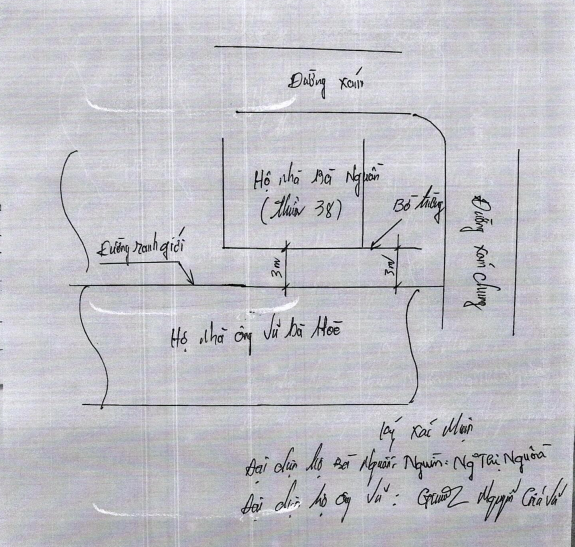 Đường xóm
Hộ nhà Bà Nguồn
(thửa 38)
Bờ tường
Đường xóm chung
Đường ranh giới
3m
3m
Hộ nhà ông Vũ bà Hoè
Ký xác nhận
Đại diện hộ Bà Nguồn: Nguồn: Ng Thị Nguồn
Đại diện hộ ông Vũ: Nguyễn Vũ